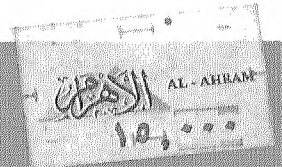 الأهرام AL - AHRAM
١٥,٠٠٠